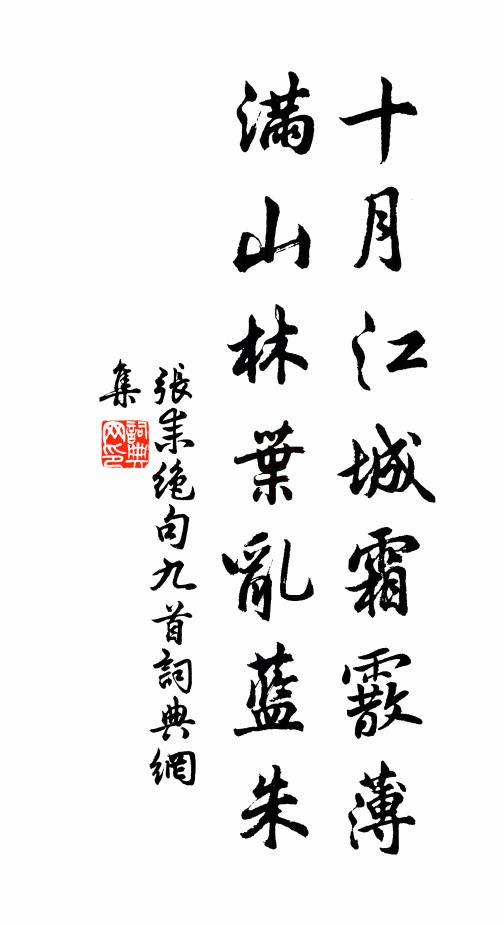 十月江城霜霰薄
滿山林葉亂藍朱
張耒絶句九首詞典網
集
詞典
网印